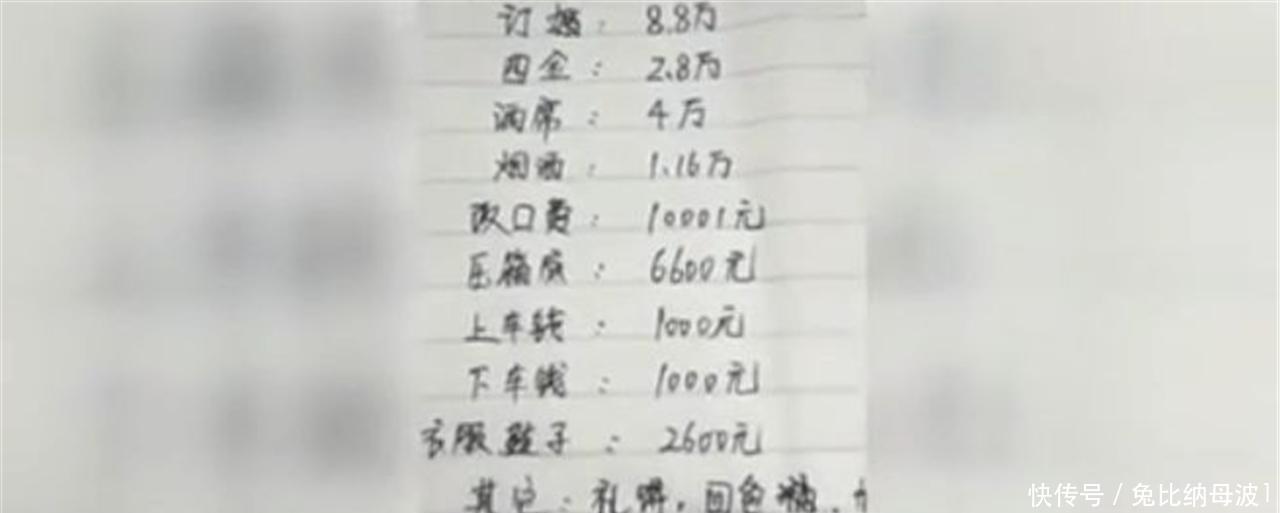 订婚：8.8万
四金：2.8万
酒席：4万
烟酒：1.16万
改口费：10001元
压箱底：6600元
上车钱：1000元
下车钱：1000元
衣服鞋子：2600元
其它：礼饼，回色糖，
快传号 / 兔比纳母波1